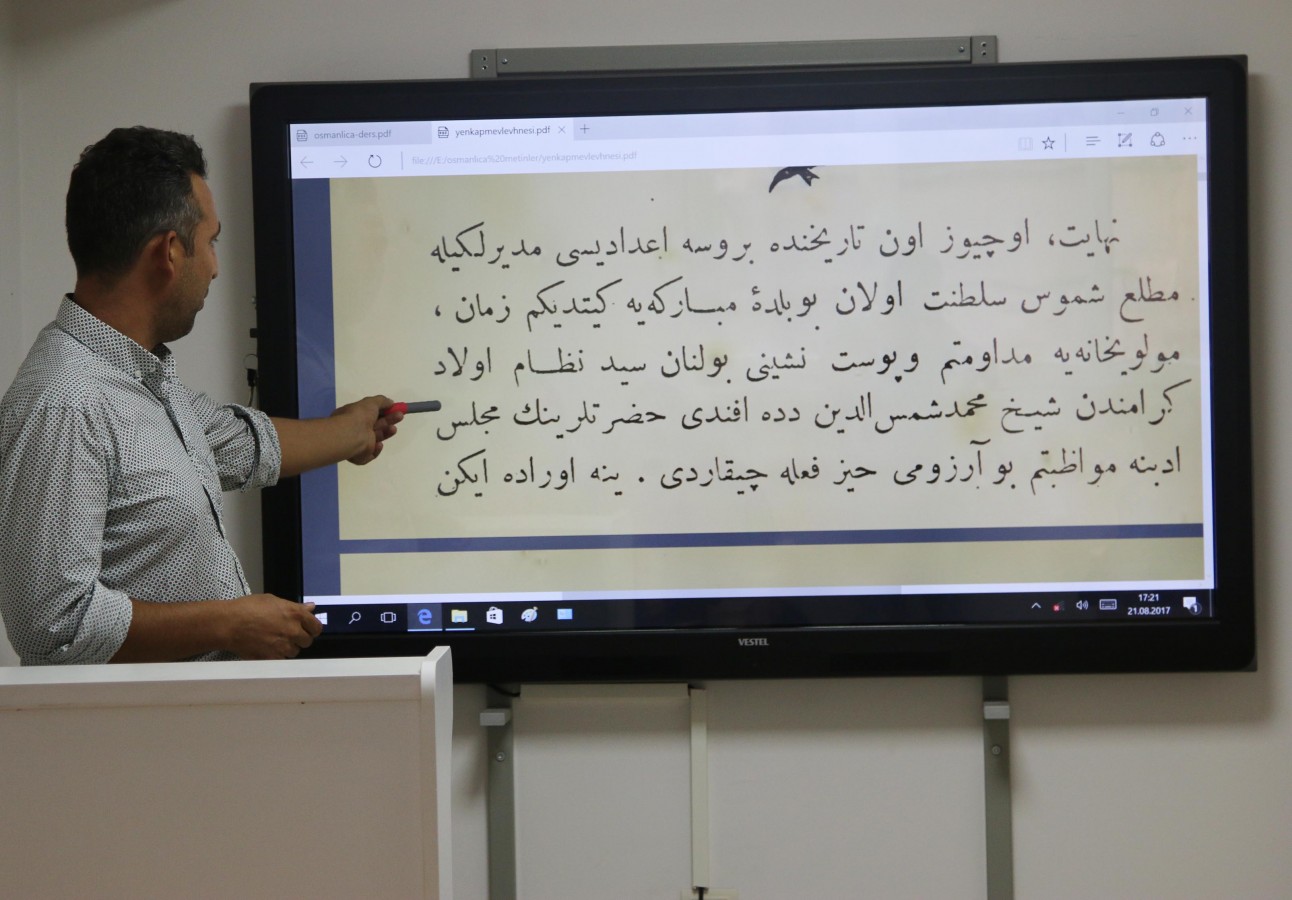 osmanlica-ders.pdf
yenkapmevlevhnesi.pdf
file:///E:/osmanlica%20metinler/yenkapmevlevhnesi.pdf
نهایت، اوچیوز اون تاریخنده بروسه اعدادیسی مدیرلکیله
مطلع شموس سلطنت اولان بوبلدهٔ مبارکه‌یه کیتدیکم زمان ،
مولویخانه‌یه مداومتم وپوست نشینی بولنان سید نظام اولاد
کرامندن شیخ محمدشمس‌الدین دده افندی حضرتلرینك مجلس
ادبنه مواظبتم بو آرزومی حیز فعله چیقاردی . ینه اوراده ایکن
17:21
21.08.2017
1
VESTEL